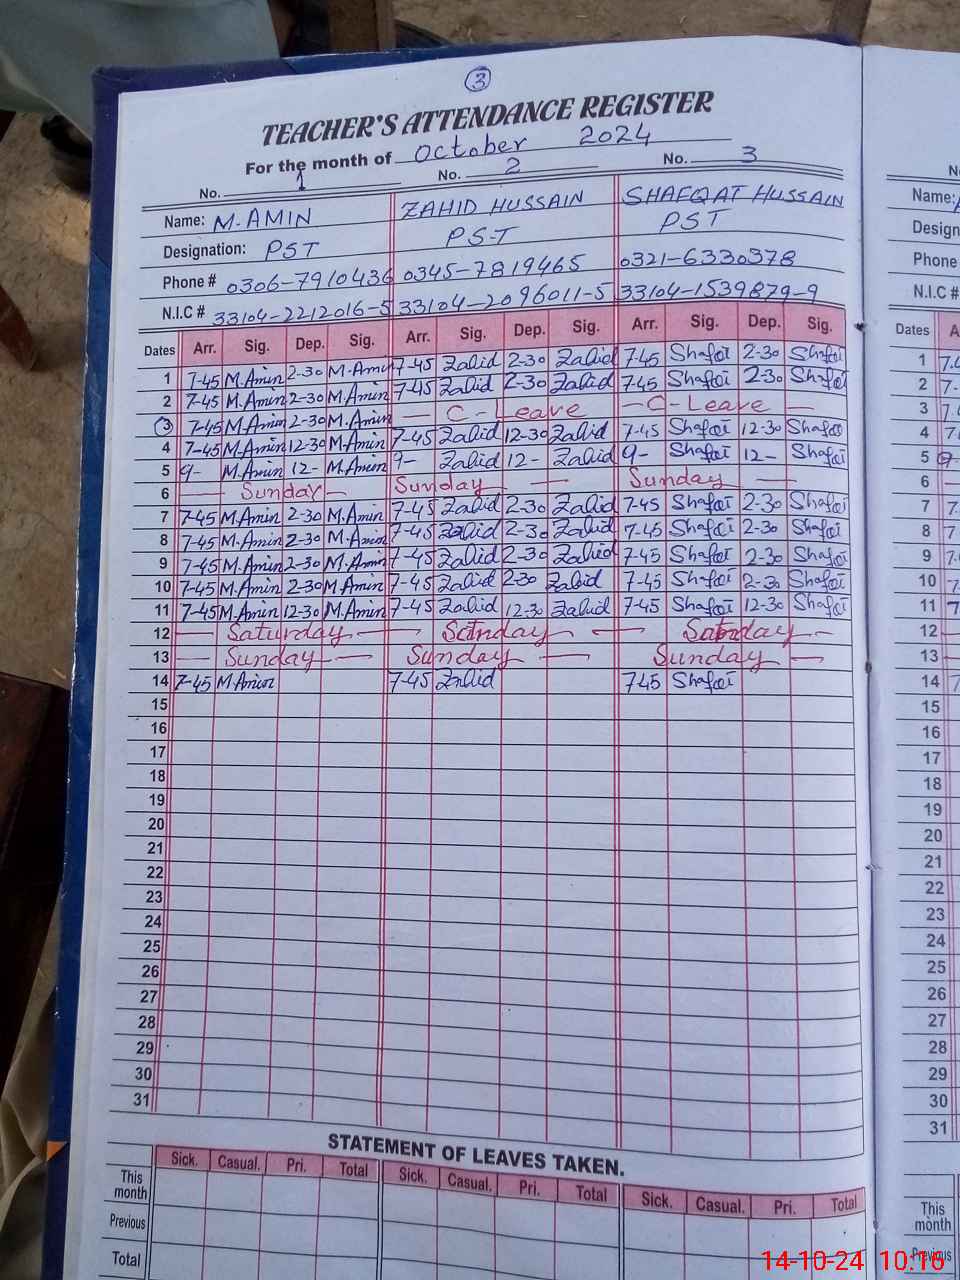 3
TEACHER'S ATTENDANCE REGISTER
For the month of October 2024
No. 1 No. 2 No. 3
Name: M. AMIN ZAHID HUSSAIN SHAFQAT HUSSAIN
Designation: PST PST PST
Phone # 0306-7910436 0345-7819465 0321-6330378
N.I.C # 33104-2212016-5 33104-2096011-5 33104-1539879-9
Dates Arr. Sig. Dep. Sig. Arr. Sig. Dep. Sig. Arr. Sig. Dep. Sig.
1 7-45 M.Amin 2-30 M.Amin 7-45 Zahid 2-30 Zahid 7-45 Shafqi 2-30 Shafqi
2 7-45 M.Amin 2-30 M.Amin 7-45 Zahid 2-30 Zahid 7-45 Shafqi 2-30 Shafqi
3 7-45 M.Amin 2-30 M.Amin — C-Leave — C-Leave —
4 7-45 M.Amin 12-30 M.Amin 7-45 Zahid 12-30 Zahid 7-45 Shafqi 12-30 Shafqi
5 9- M.Amin 12- M.Amin 9- Zahid 12- Zahid 9- Shafqi 12- Shafqi
6 — Sunday — Sunday — Sunday —
7 7-45 M.Amin 2-30 M.Amin 7-45 Zahid 2-30 Zahid 7-45 Shafqi 2-30 Shafqi
8 7-45 M.Amin 2-30 M.Amin 7-45 Zahid 2-30 Zahid 7-45 Shafqi 2-30 Shafqi
9 7-45 M.Amin 2-30 M.Amin 7-45 Zahid 2-30 Zahid 7-45 Shafqi 2-30 Shafqi
10 7-45 M.Amin 2-30 M.Amin 7-45 Zahid 2-30 Zahid 7-45 Shafqi 2-30 Shafqi
11 7-45 M.Amin 12-30 M.Amin 7-45 Zahid 12-30 Zahid 7-45 Shafqi 12-30 Shafqi
12 — Saturday — Saturday — Saturday —
13 — Sunday — Sunday — Sunday —
14 7-45 M.Amin 7-45 Zahid 745 Shafqi
15
16
17
18
19
20
21
22
23
24
25
26
27
28
29
30
31
STATEMENT OF LEAVES TAKEN.
Sick. Casual. Pri. Total Sick. Casual. Pri. Total Sick. Casual. Pri. Total
This month
Previous
Total
Name:
Phone
N.I.C #
Dates
1
2
3
4
5
6
7
8
9
10
11
12
13
14
15
16
17
18
19
20
21
22
23
24
25
26
27
28
29
30
31
This month
Previous
14-10-24 10:16